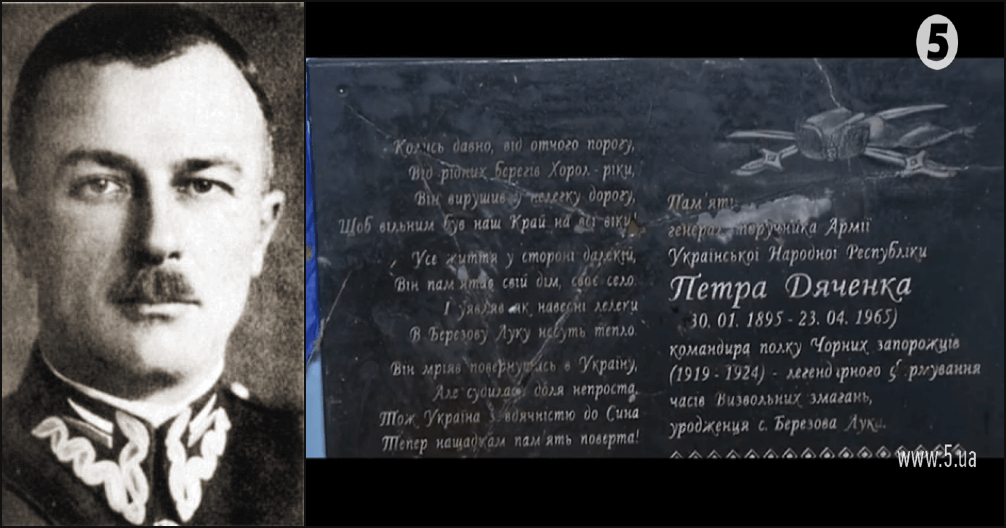 5
Колись давно, від отчого порогу,
Від рідних берегів Хорол-ріки,
Він вирушив у нелегку дорогу,
Щоб вільним був наш Край на всі віки!
Усе життя у стороні далекій,
Він пам'ятав свій дім, своє село.
І уявляв як навесні лелеки
В Березову Луку несуть тепло.
Він мріяв повернутись в Україну,
Але судилась доля непроста,
Тож Україна з вдячністю до Сина
Тепер нащадкам пам'ять поверта!
Пам'яті
генерал поручника Армії
Української Народної Республіки
Петра Дяченка
30. 01. 1895 - 23. 04. 1965)
командира полку Чорних запорожців
(1919 - 1924) - легендарного формування
часів Визвольних змагань,
уродженця с. Березова Лука.
www.5.ua